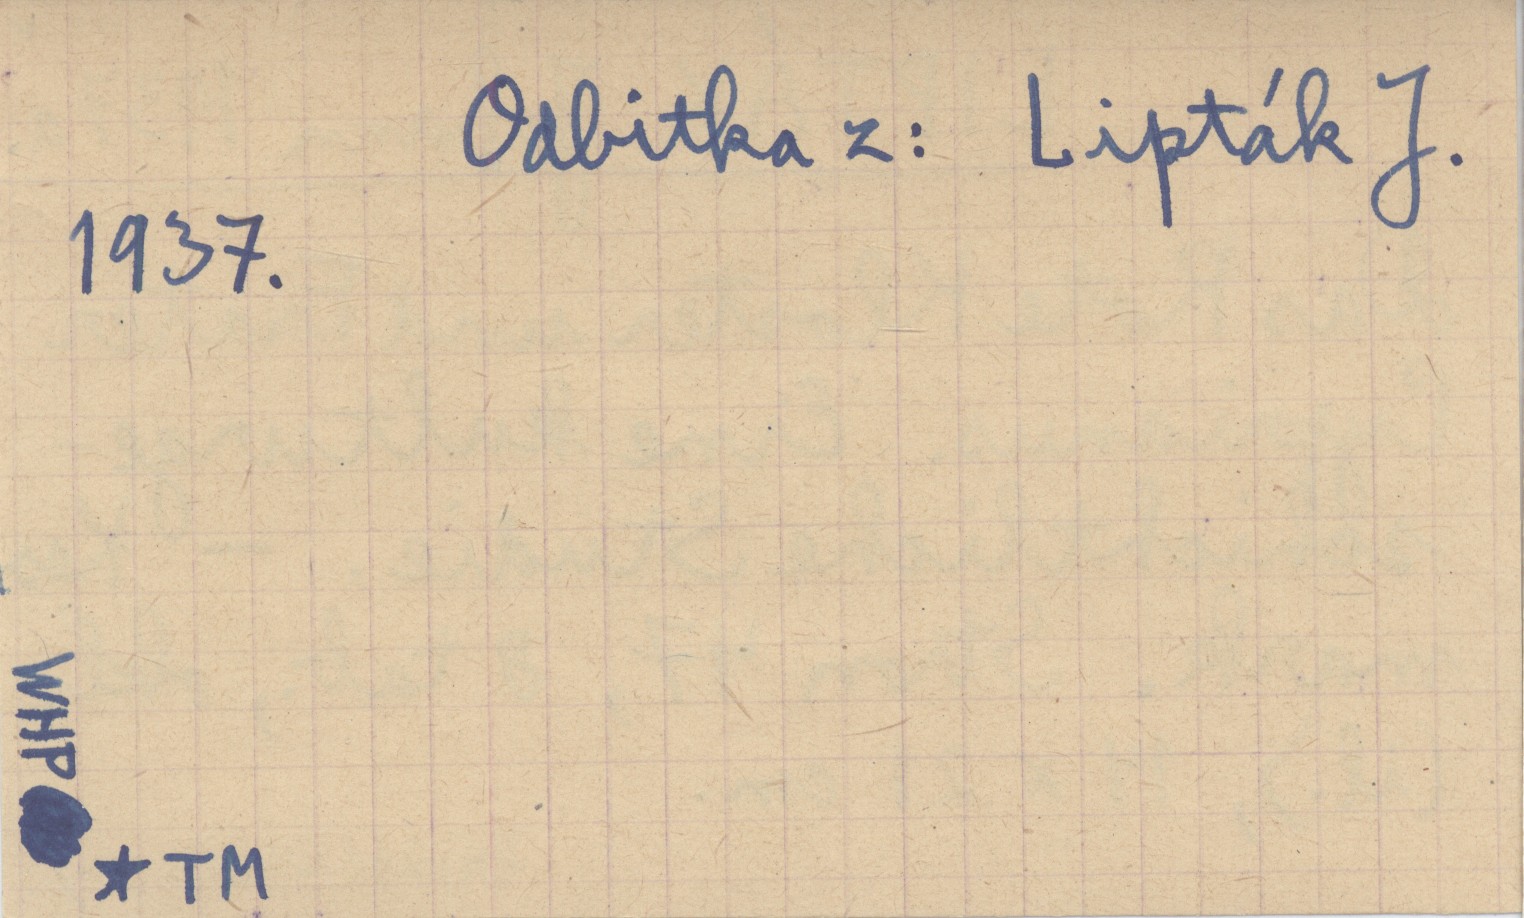 Odbitka z: Lipták J.
1937.
WHP
★ TM